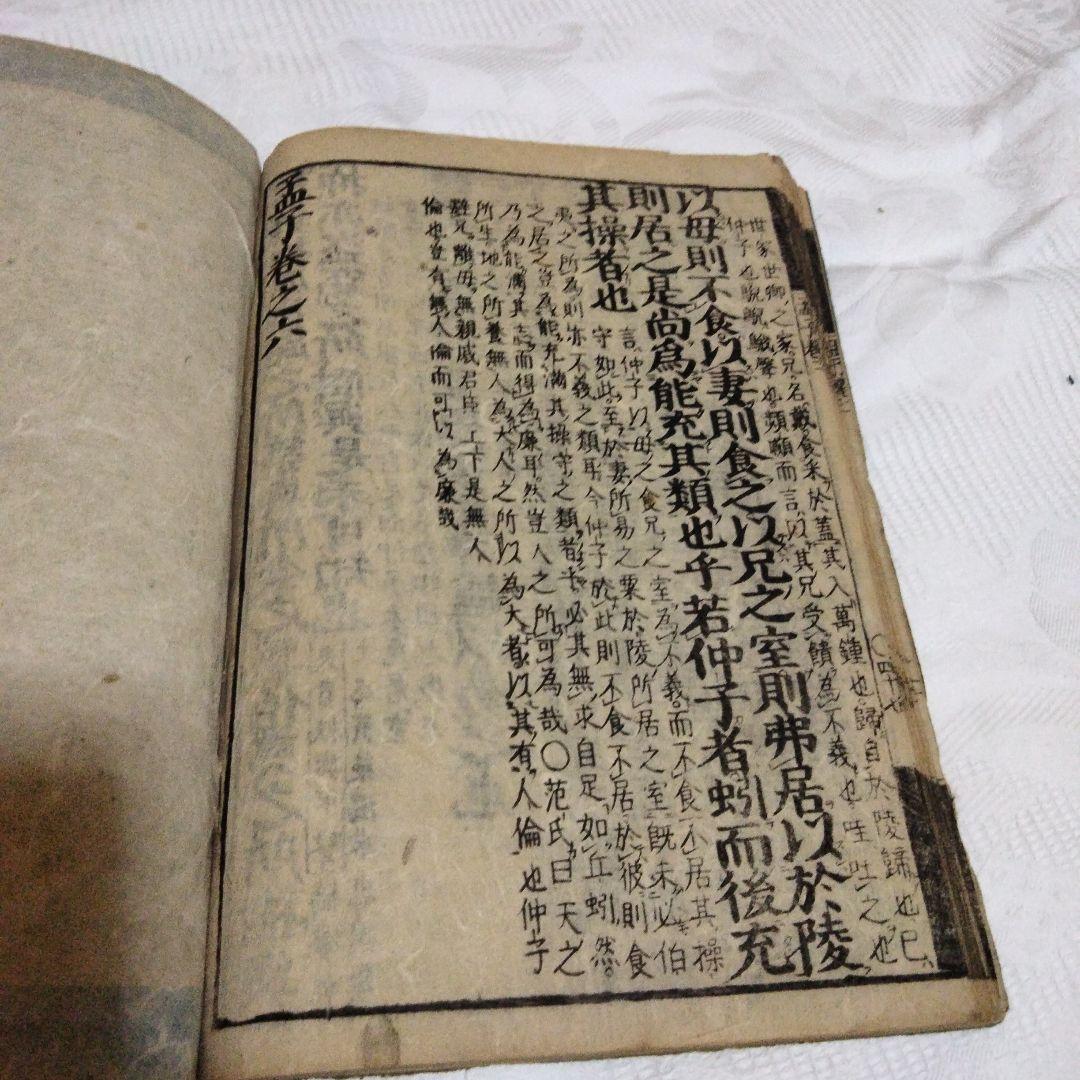 世家世卿之家兄名戴食采於蓋其入萬鍾也歸自於陵歸也己
仲子也鶃鶃鵝聲也頻顣而言以其兄受饋為不義也哇吐之也
以母則不食以妻則食之以兄之室則弗居以於陵
則居之是尚為能充其類也乎若仲子者蚓而後充
其操者也
言仲子以母之食兄之室為不義而不食不居其操
守如此至於妻所易之粟於陵所居之室既未必伯
夷之所為則亦不義之類耳今仲子於此則不食不居於彼則食
之居之豈為能充滿其操守之類者乎必其無求自足如丘蚓然
乃為能滿其志而得為廉耳然豈人之所可為哉〇范氏曰天之
所生地之所養無人為大人之所以為大者以其有人倫也仲子
避兄離母無親戚君臣上下是無人
倫也豈有無人倫而可以為廉哉
孟子卷之六